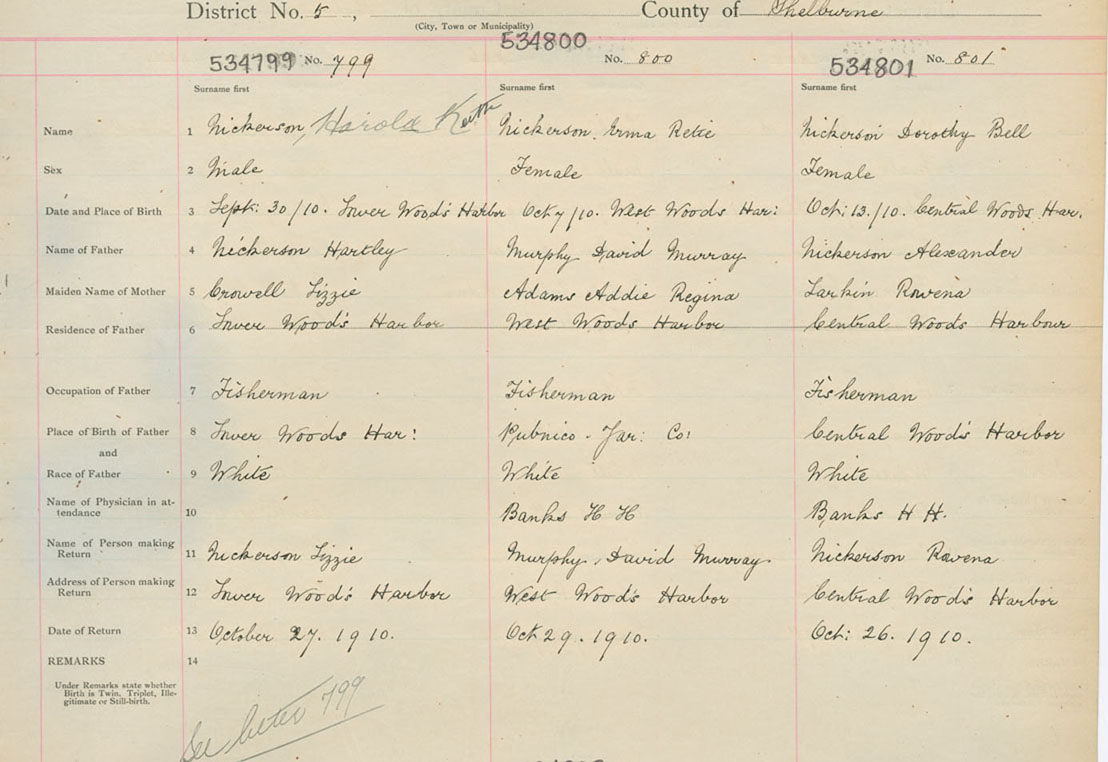 District No. 5, County of Shelburne
(City, Town or Municipality)
534799 No. 799 534800 No. 800 534801 No. 801
Surname first Surname first Surname first
Name 1 Nickerson, Harold Keith Nickerson Erma Retie Nickerson Dorothy Bell
Sex 2 Male Female Female
Date and Place of Birth 3 Sept: 30/10. Lower Wood's Harbor Oct 7/10. West Woods Har: Oct: 13./10. Central Woods Har.
Name of Father 4 Nickerson Hartley Murphy David Murray Nickerson Alexander
Maiden Name of Mother 5 Crowell Lizzie Adams Addie Regina Larkin Rowena
Residence of Father 6 Lower Wood's Harbor West Woods Harbor Central Woods Harbour
Occupation of Father 7 Fisherman Fisherman Fisherman
Place of Birth of Father 8 Lower Woods Har: Pubnico. Yar: Co: Central Wood's Harbor
and
Race of Father 9 White White White
Name of Physician in at-
tendance 10 Banks H H Banks H H.
Name of Person making
Return 11 Nickerson Lizzie Murphy, David Murray Nickerson Rowena
Address of Person making
Return 12 Lower Wood's Harbor West Wood's Harbor Central Wood's Harbor
Date of Return 13 October 27. 1910. Oct 29. 1910. Oct: 26. 1910.
REMARKS 14
Under Remarks state whether
Birth is Twin, Triplet, Ille-
gitimate or Still-birth.
See letter 799